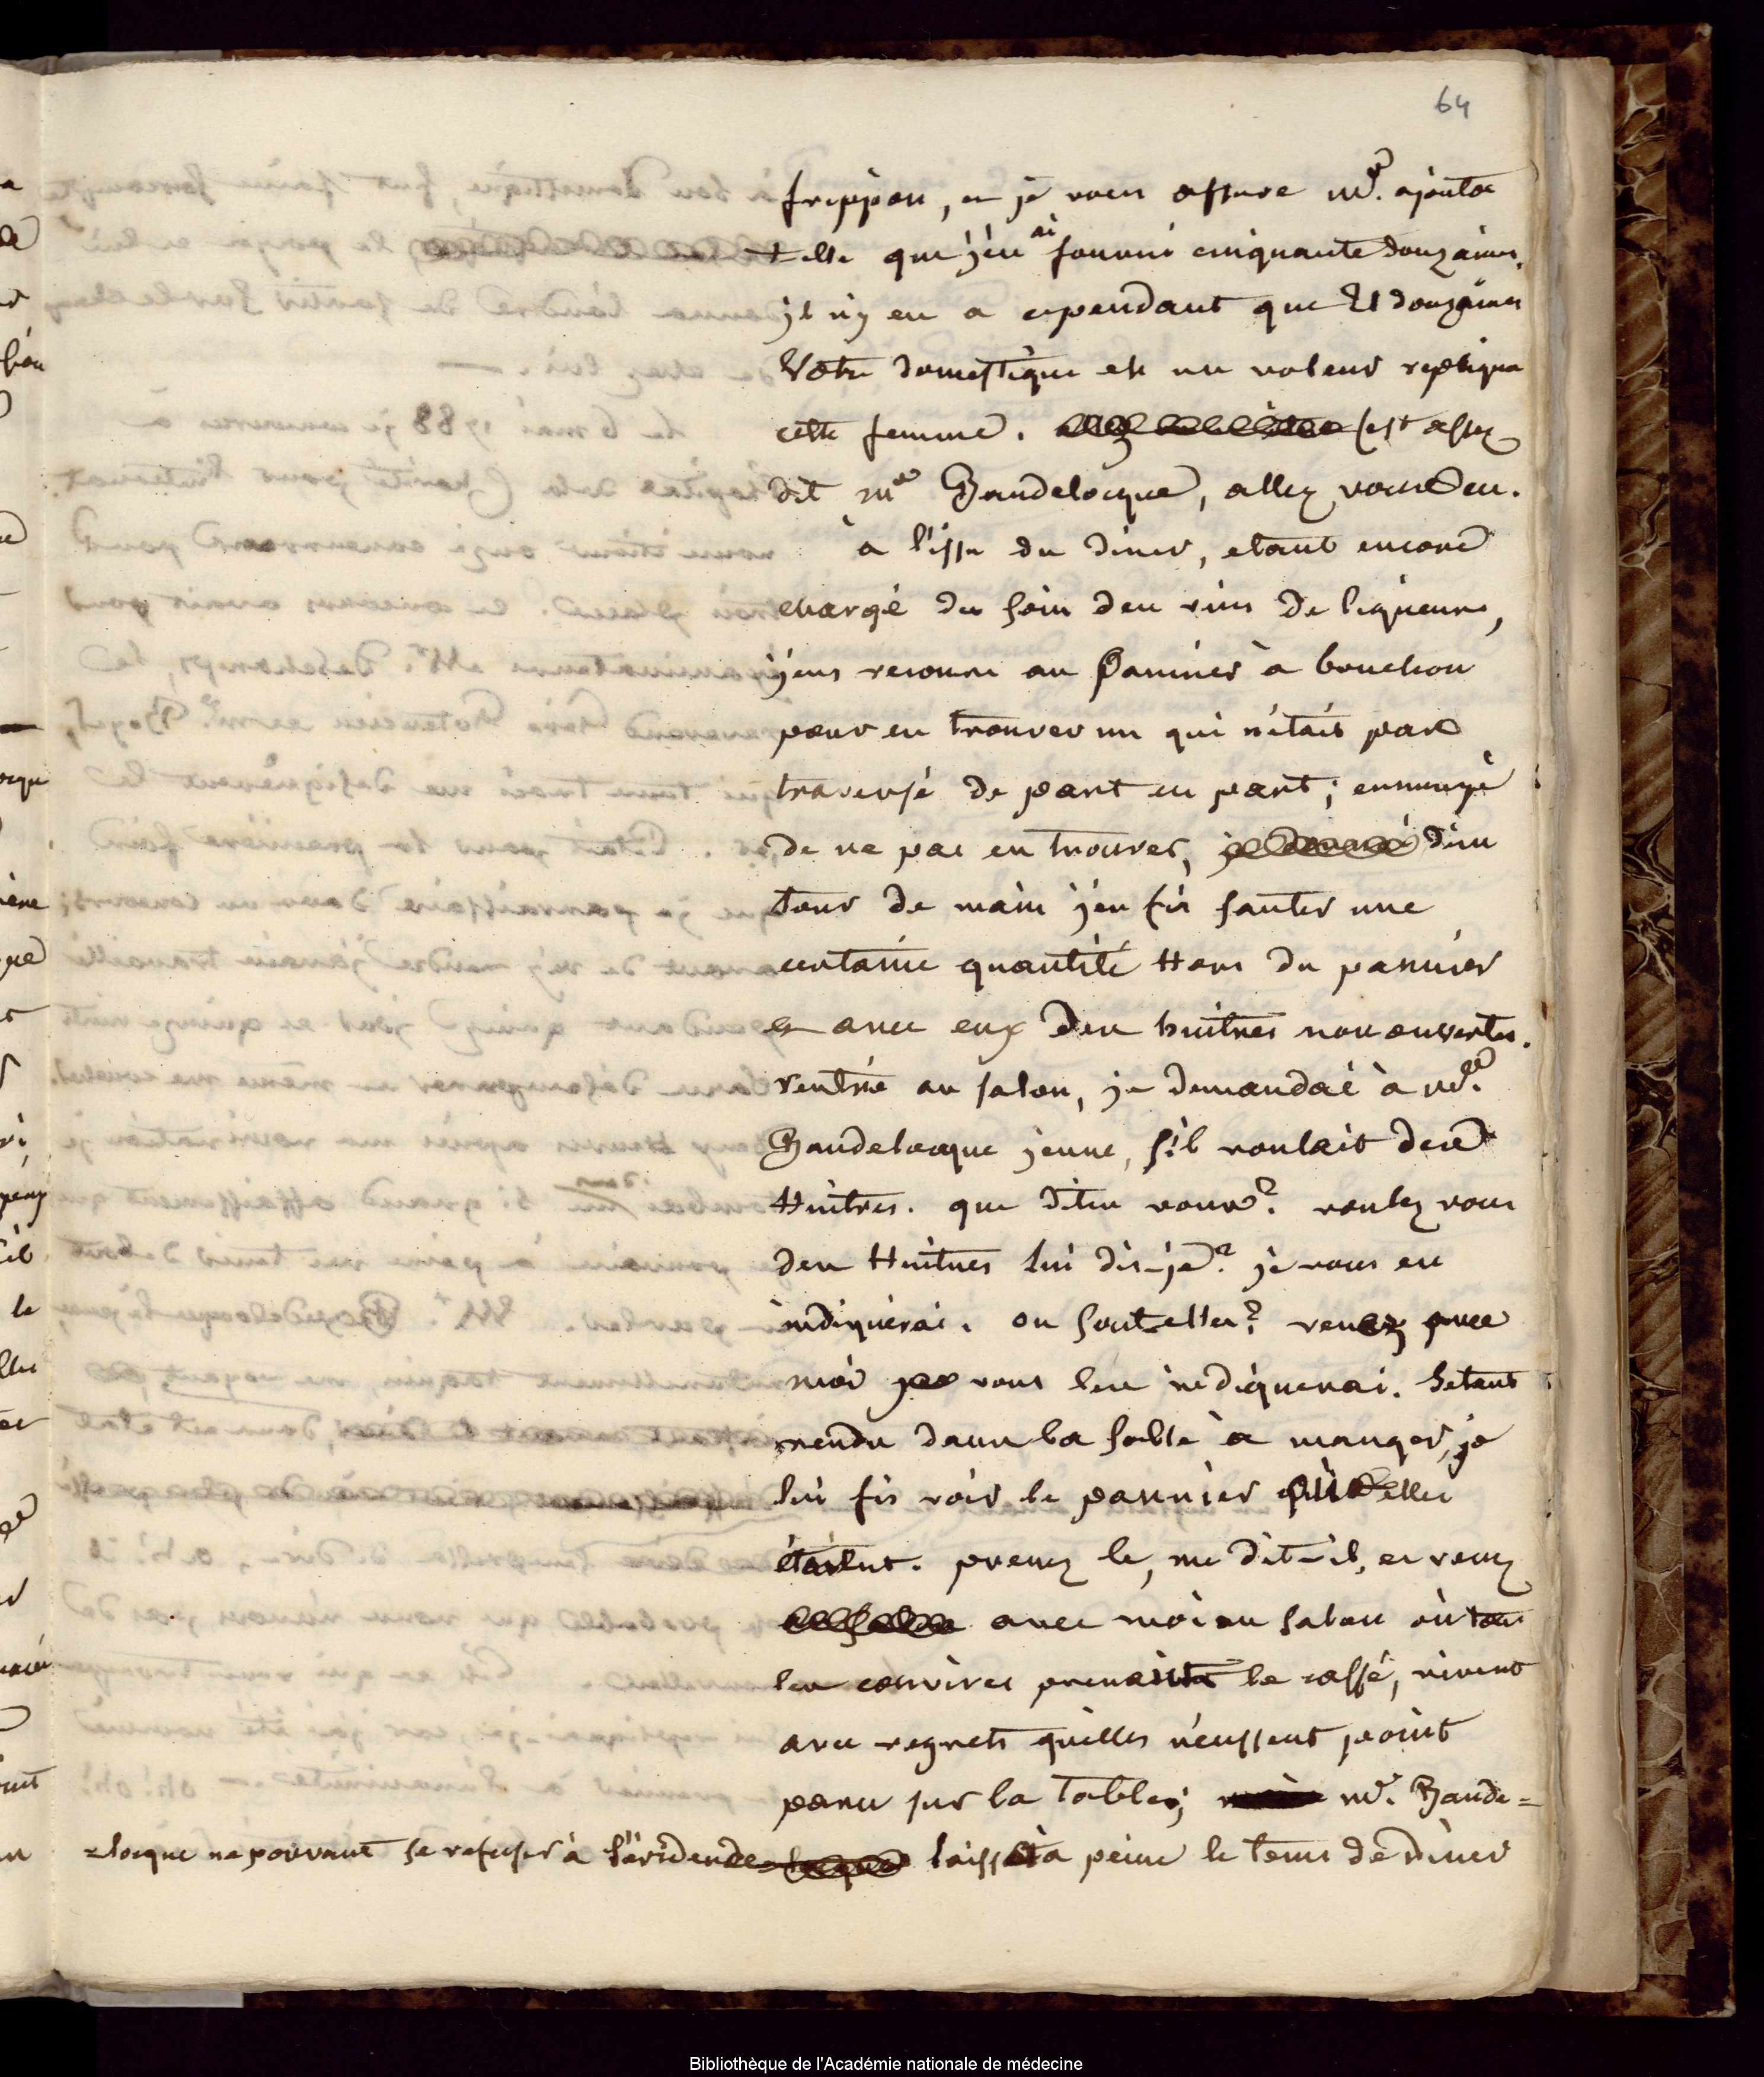 64
frippon, et je vous assure md. ajouta
t-elle que j'en ai fourni cinquante douzaines.
jl n'y en a cependant que 21 douzaines
Votre domestique est un voleur repliqua
cette femme. c'est assez
dit me Baudelocque, allez vous en.
à l'issu du diner, etant encore
chargé du soin des vins de liqueurs,
j'eus recours au pannier à bouchon
pour en trouver un qui n'etais pas
traversé de part en part; ennuyé
de ne pas en trouver, d'un
tour de main j'en fis sauter une
certaine quantité Hors du pannier
et avec eux des huitres non ouvertes.
rentré au salon, je demandai à md.
Baudelocque jeune, s'il voulait des
Huitres. que dites vous? voulez vous
des Huitres lui dis-je? je vous en
indiquerai. ou sont elles? venez avec
moi je vous les indiquerai. Setant
rendu dans la salle à manger, je
lui fis voir le pannier où elles
étaient. prenez le, me dit-il, et venez
avec moi au salon où tous
les convives prenaient le caffé, virent
avec regrets qu'elles n'eussent point
paru sur la table; md. Baude=
=locque ne pouvant se refuser à l'évidence laissa à peine le tems de diner
Bibliothèque de l'Académie nationale de médecine